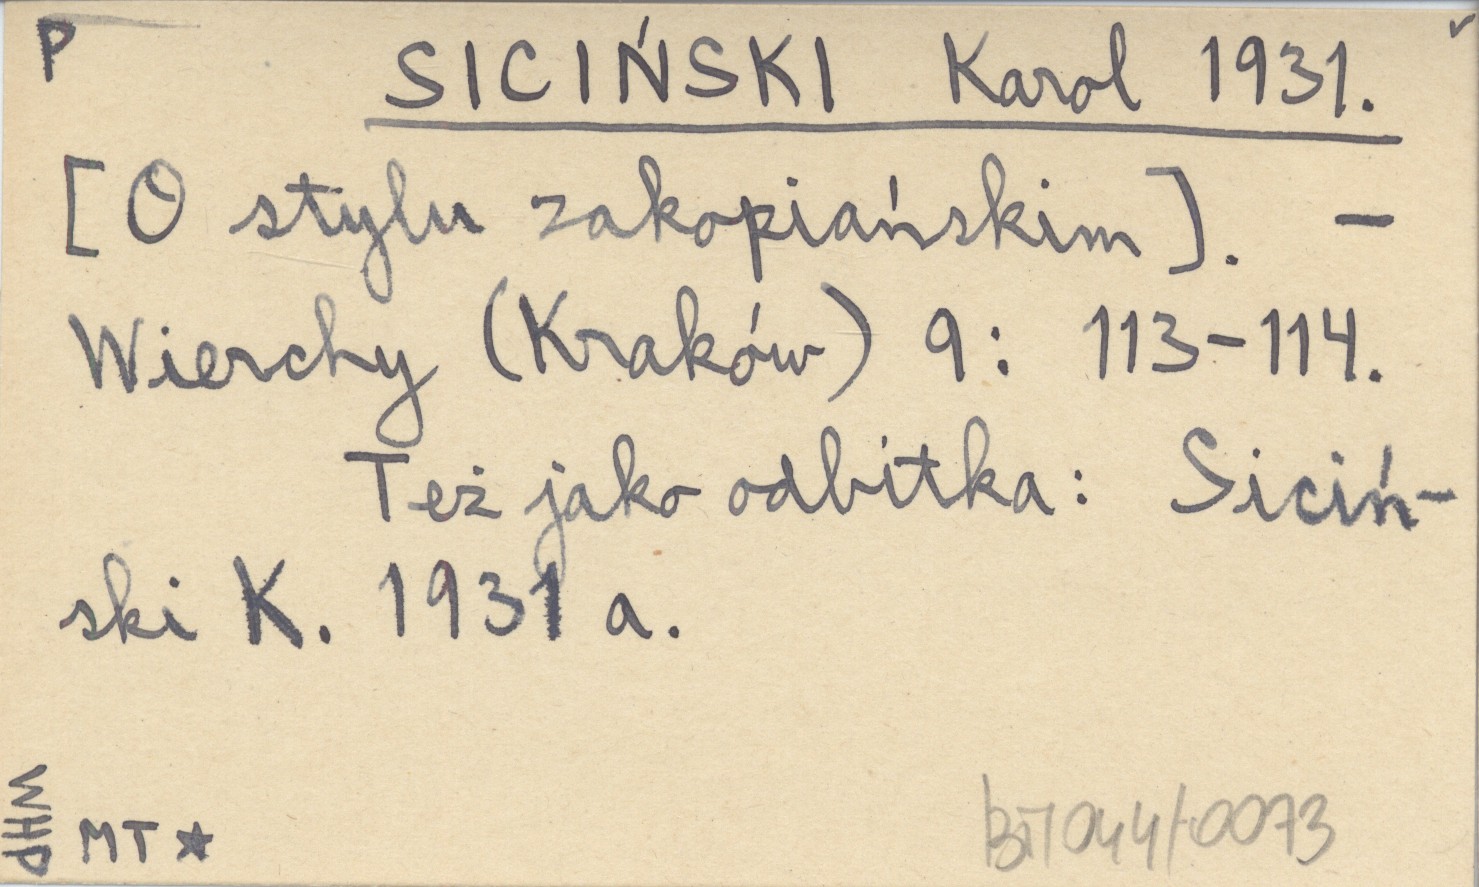 P
SICIŃSKI Karol 1931.
[O stylu zakopiańskim]. –
Wierchy (Kraków) 9: 113–114.
Też jako odbitka: Siciń-
ski K. 1931 a.
WHP
MT ★